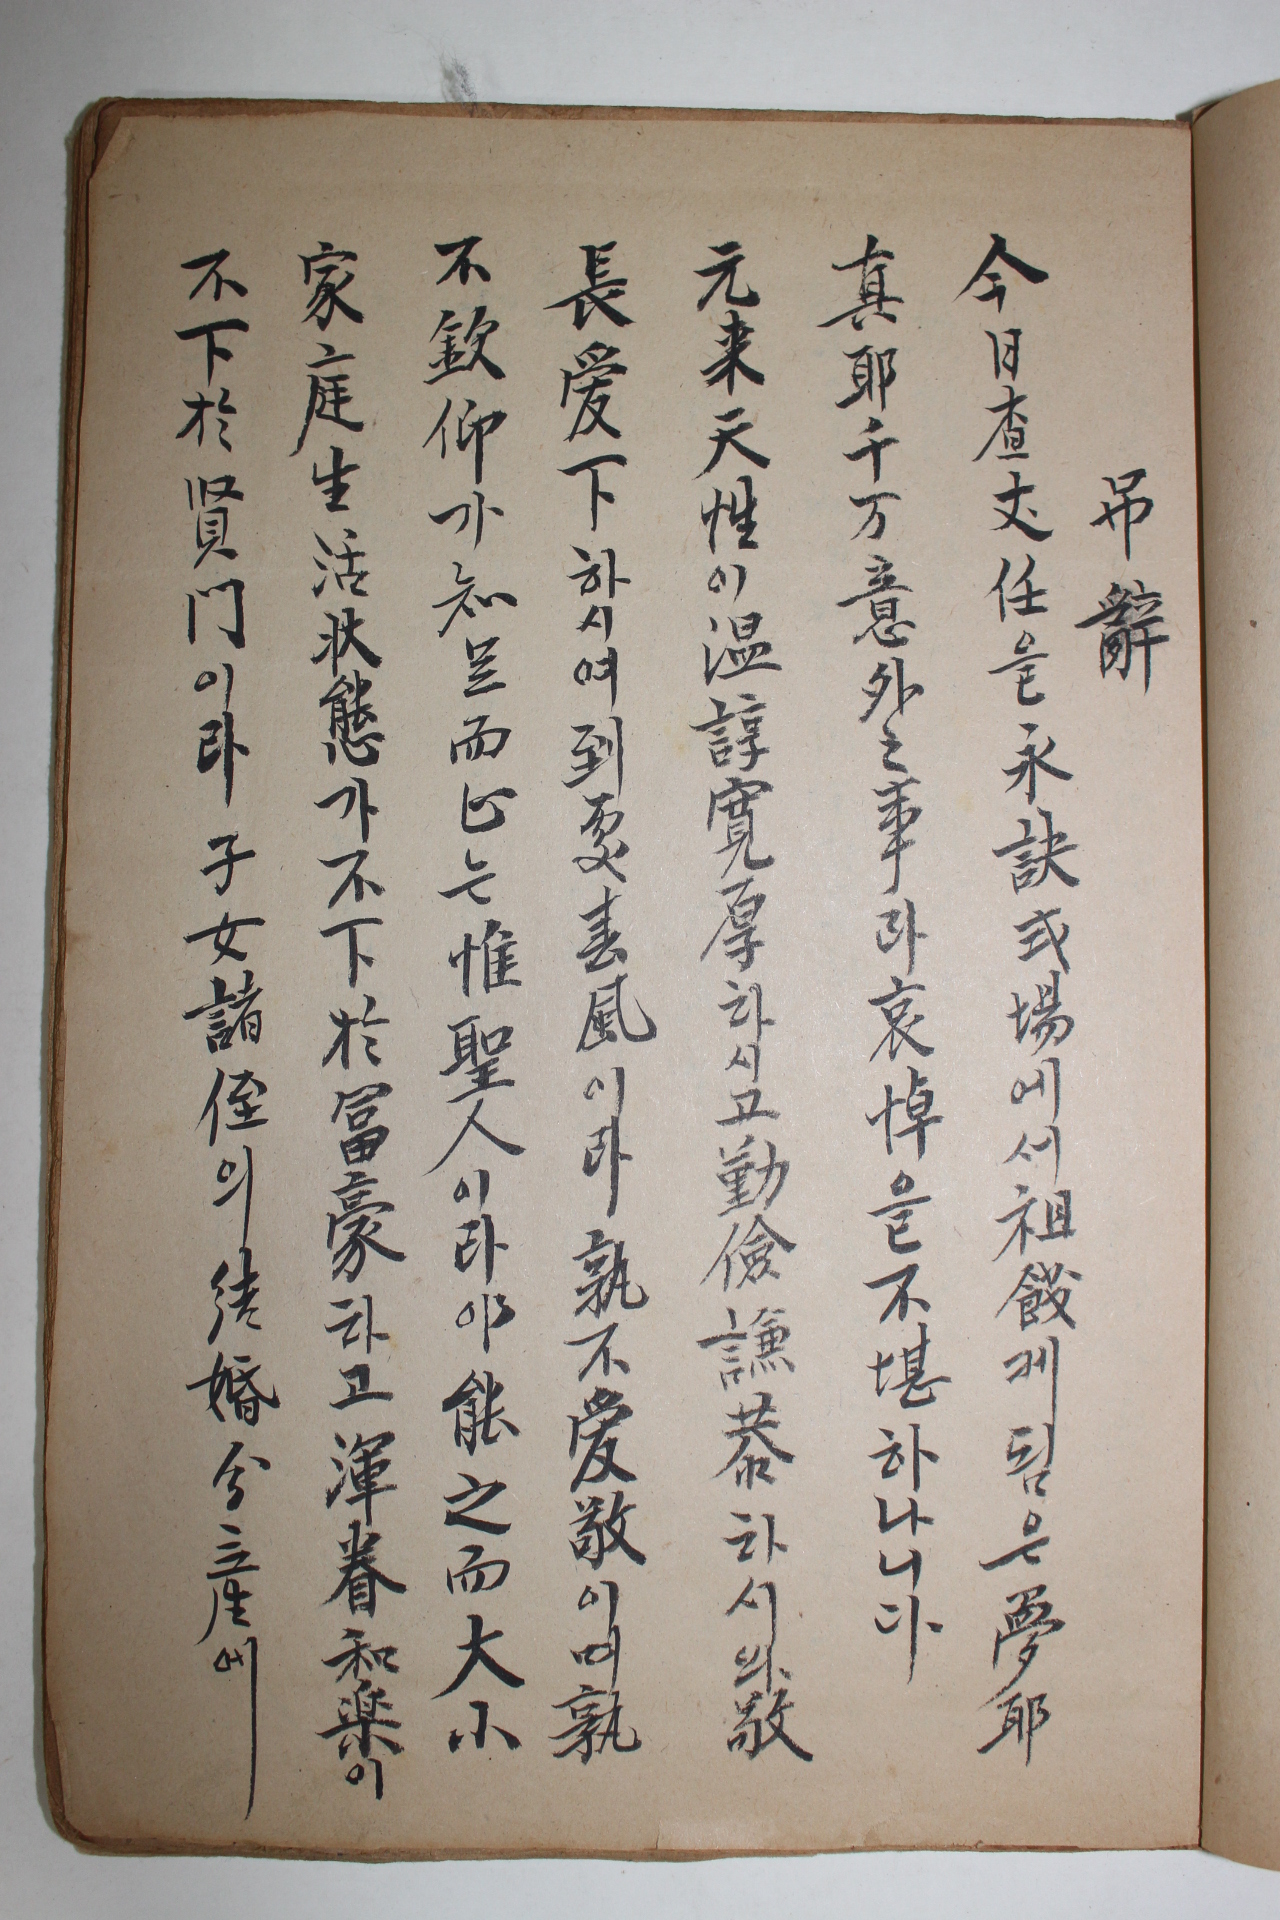 吊辭
今日査丈任을永訣式場에서祖餞게됨은夢耶
真耶千万意外之事라哀悼을不堪하나니다
元来天性이温諄寬厚하시고勤儉謙恭하시며敬
長爱下하시며到處春風이라孰不愛敬이며孰
不欽仰가知足而止는惟聖人이라야能之而大小
家庭生活狀態가不下於冨豪하고渾眷和楽이
不下於賢門이라子女諸侄의結婚分産에